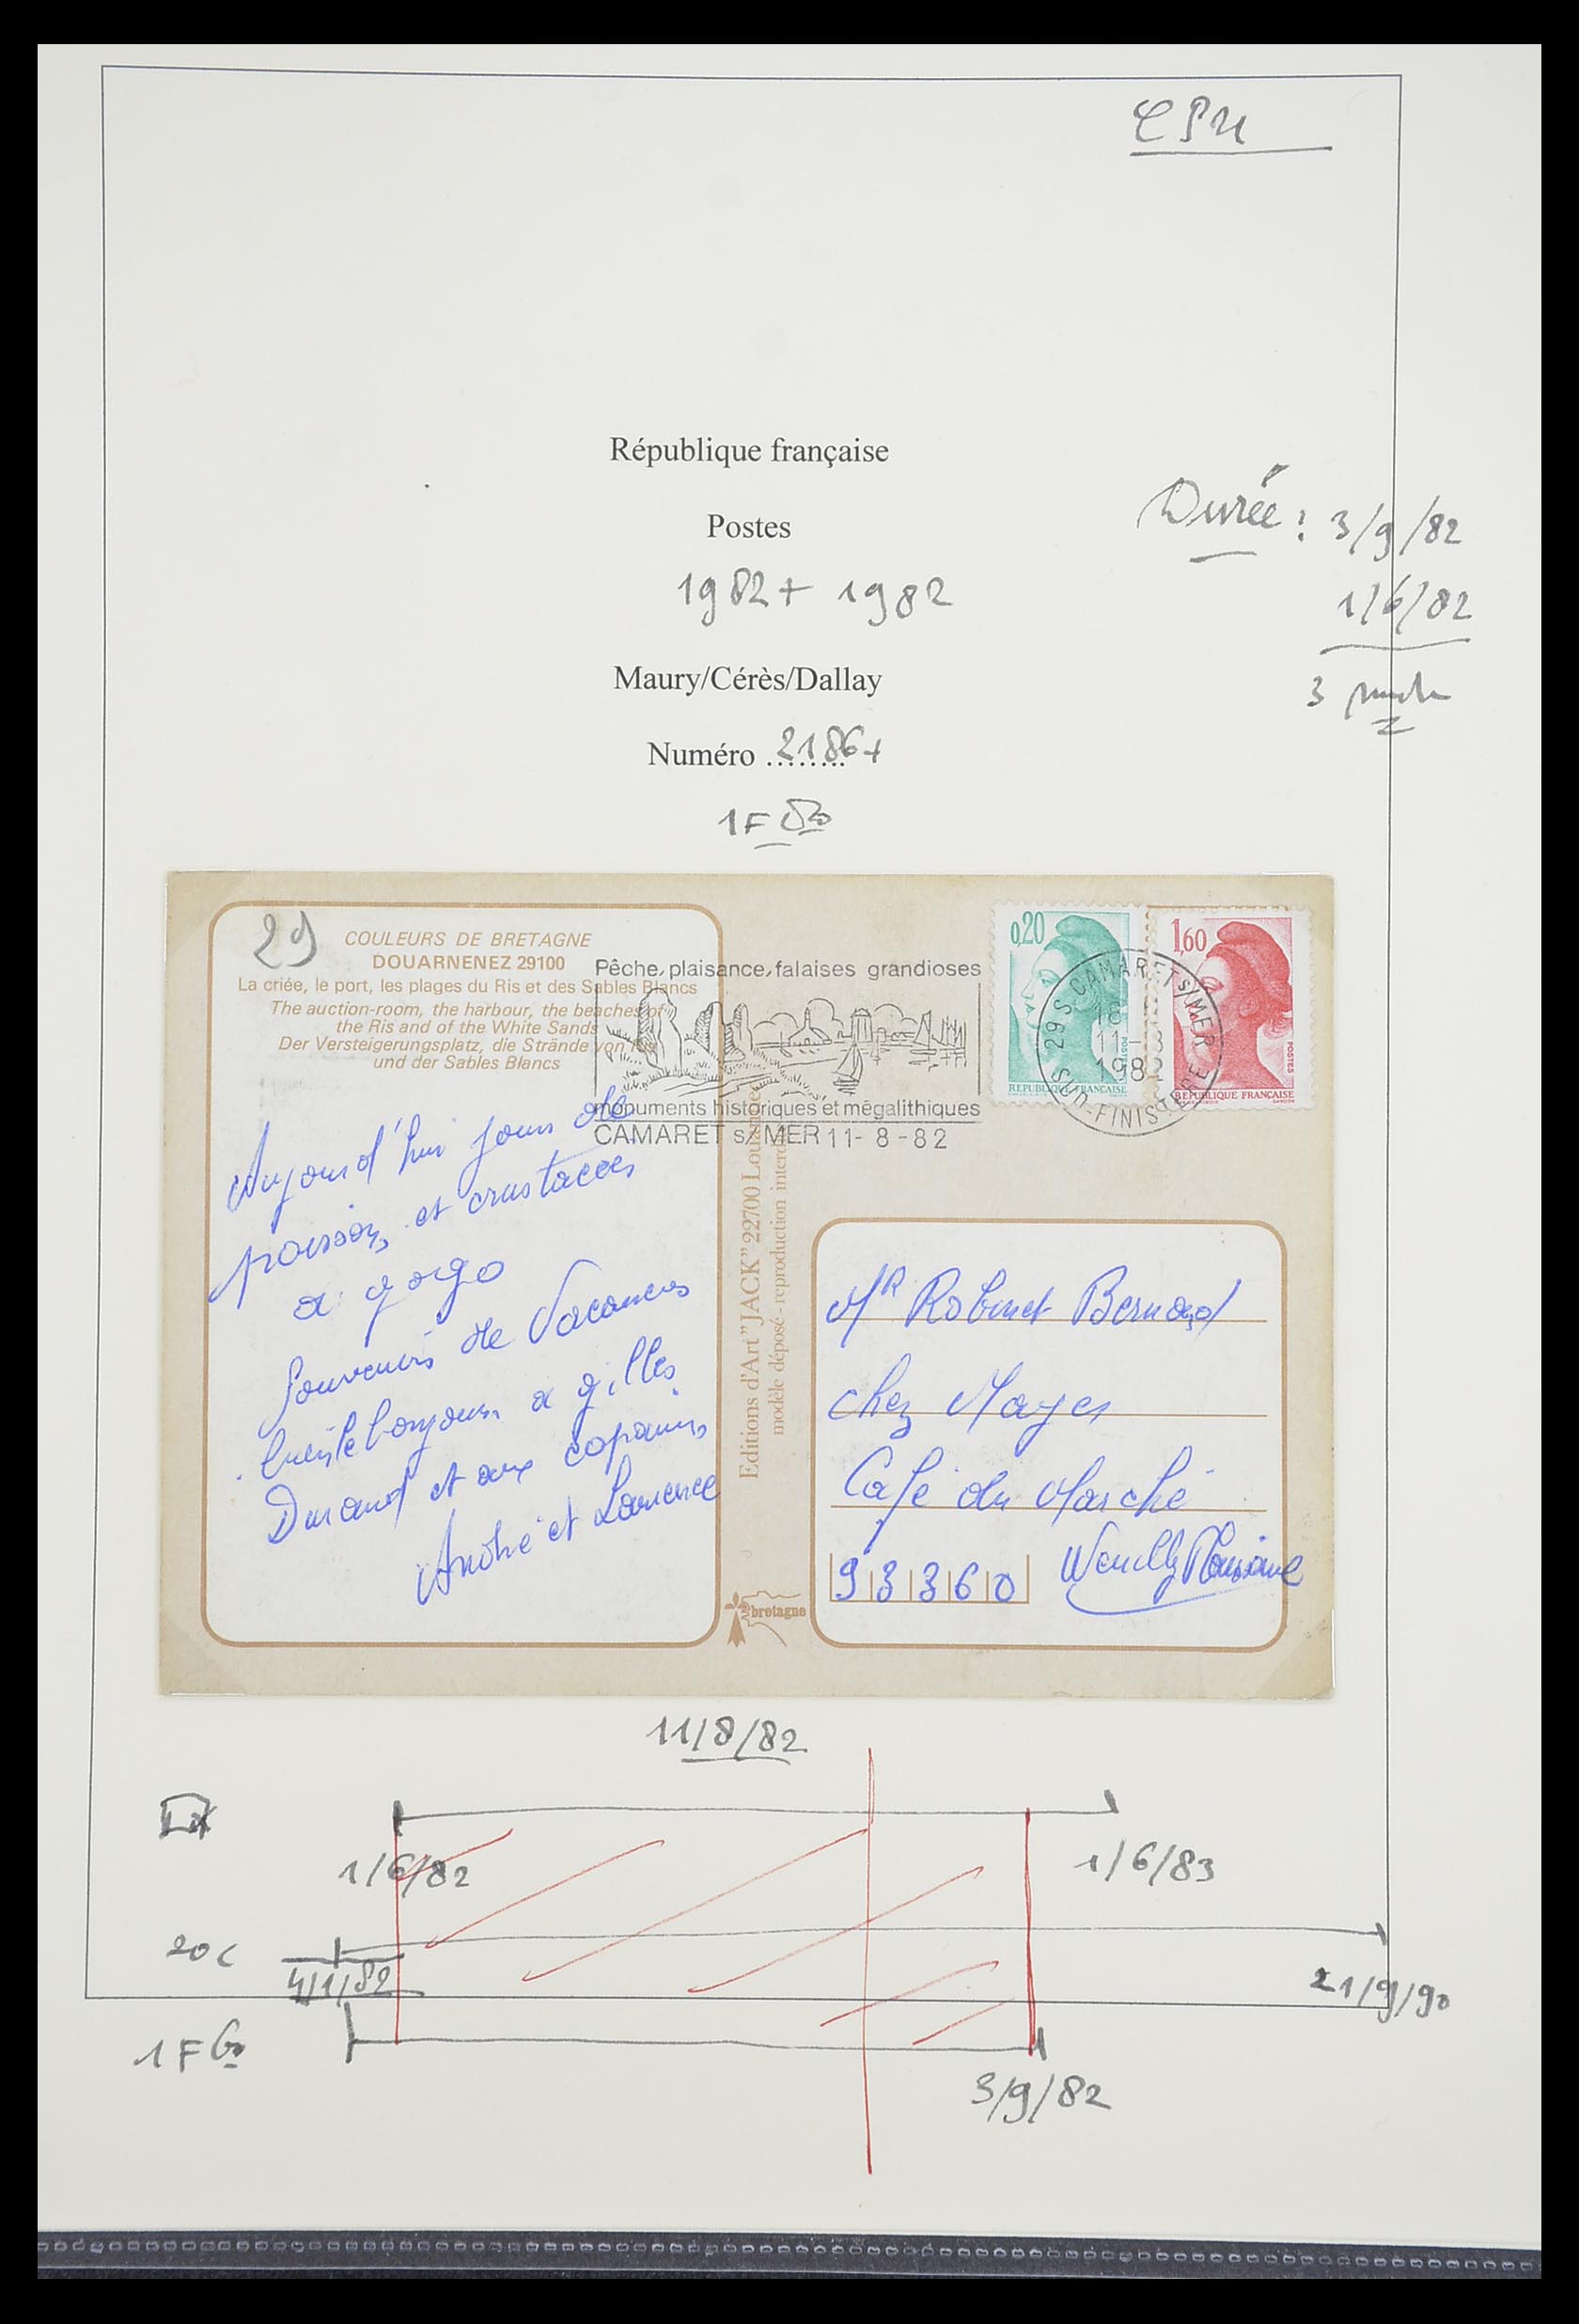 République française
Postes
1982 + 1982
Maury/Cérès/Dallay
Numéro ........ 2186+
1F 80
Durée : 3/9/82
1/6/82
3
29
COULEURS DE BRETAGNE
DOUARNENEZ 29100
La criée, le port, les plages du Ris et des Sables Blancs
The auction-room, the harbour, the beaches of
the Ris and of the White Sands
Der Versteigerungsplatz, die Strände von Ris
und der Sables Blancs
Pêche, plaisance, falaises grandioses
monuments historiques et mégalithiques
CAMARET s/MER 11-8-82
0,20
REPUBLIQUE FRANÇAISE
POSTES
1,60
REPUBLIQUE FRANÇAISE
POSTES
29 S CAMARET S/MER
18
11-8
1982
SUD-FINISTERE
Aujourd'hui jour de
poisson, et crustacés
a gogo
Souvenirs de Vacances
le bonjour a gilles
Durand et aux copains
André et Laurence
Editions d'Art "JACK" 22700 Louannec
modèle déposé - reproduction interdite
bretagne
Mr Robinet Bernard
chez Mayer
Café du Marché
93360 Neuilly Plaisance
11/8/82
1/6/82
1/6/83
20c
4/1/82
21/9/90
1F60
3/9/82